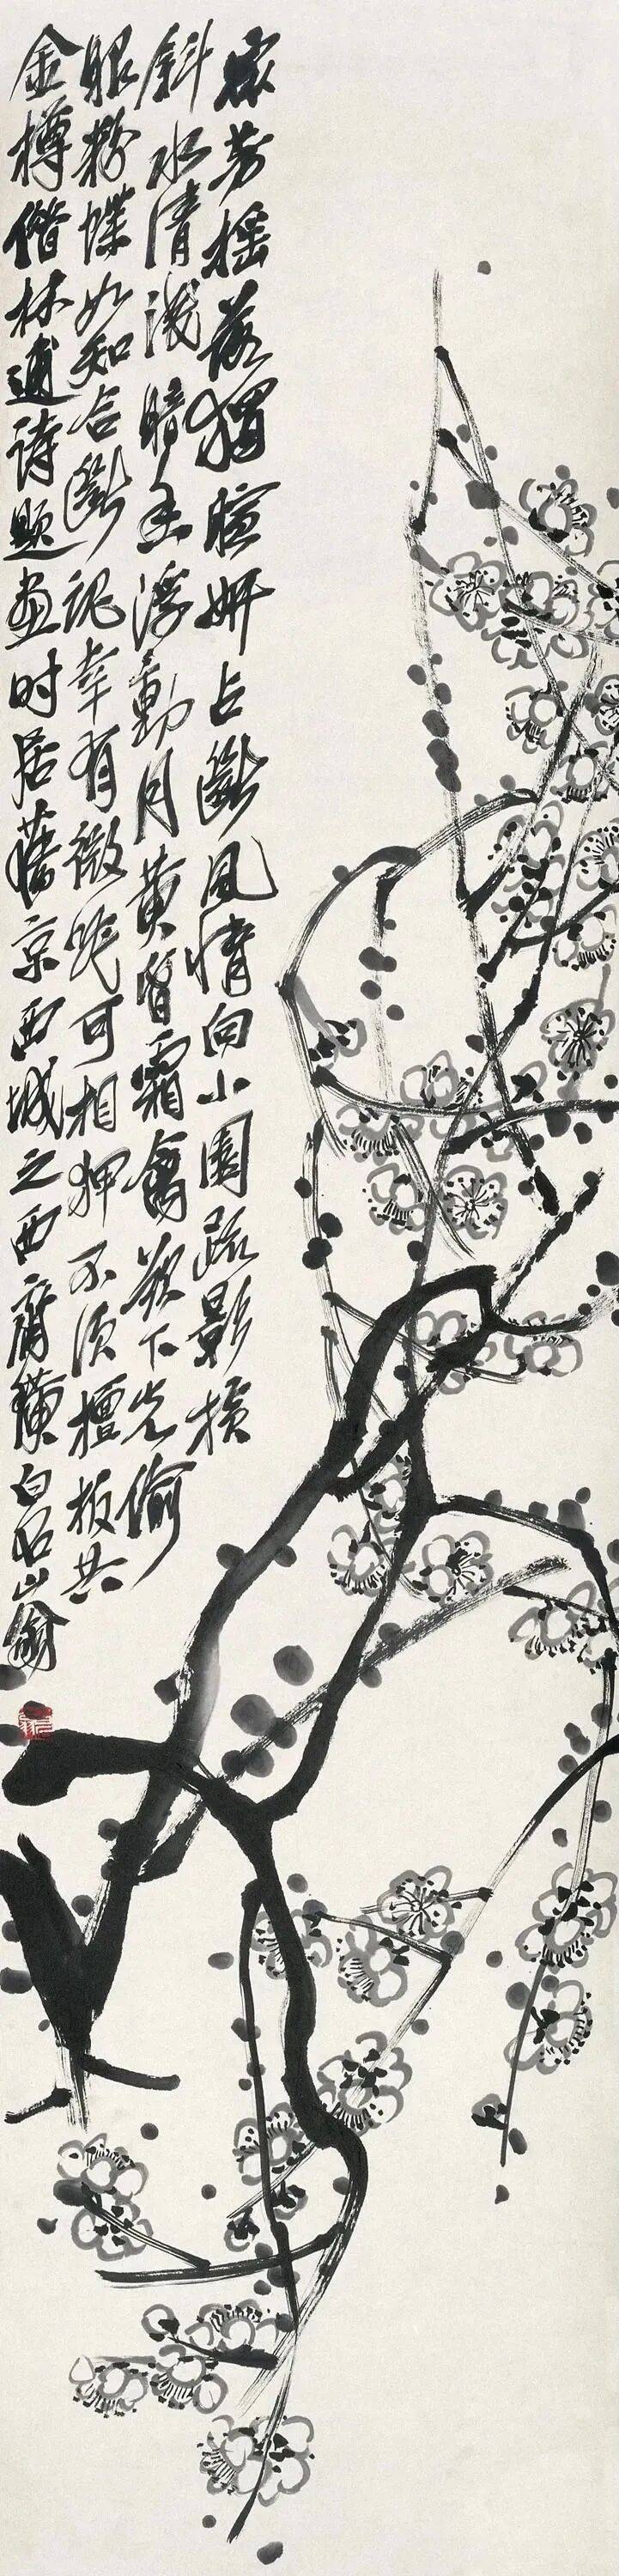 衆芳摇落獨暄妍占斷風情向小園疏影横
斜水清淺暗香浮動月黄昏霜禽欲下先偷
眼粉蝶如知合斷魂幸有微吟可相狎不須檀板共
金樽借林逋詩題畫时居舊京西城之西齊璜白石山翁